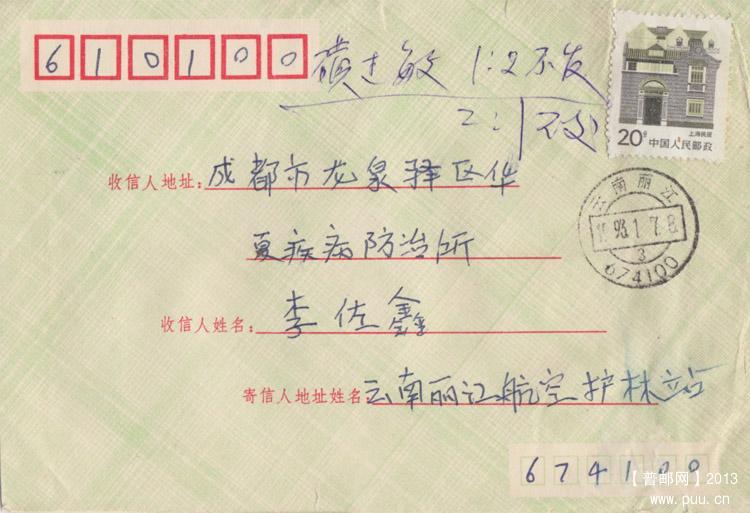 610100
过敏 1:2 不发
2:1 不发
上海民居
20分 中国人民邮政
收信人地址: 成都市龙泉驿区华
夏疾病防治所
云南丽江
93.1.7.8
3
674100
收信人姓名: 李佐鑫
寄信人地址姓名 云南丽江航空护林站
674100
【普邮网】2013
www.puu.cn